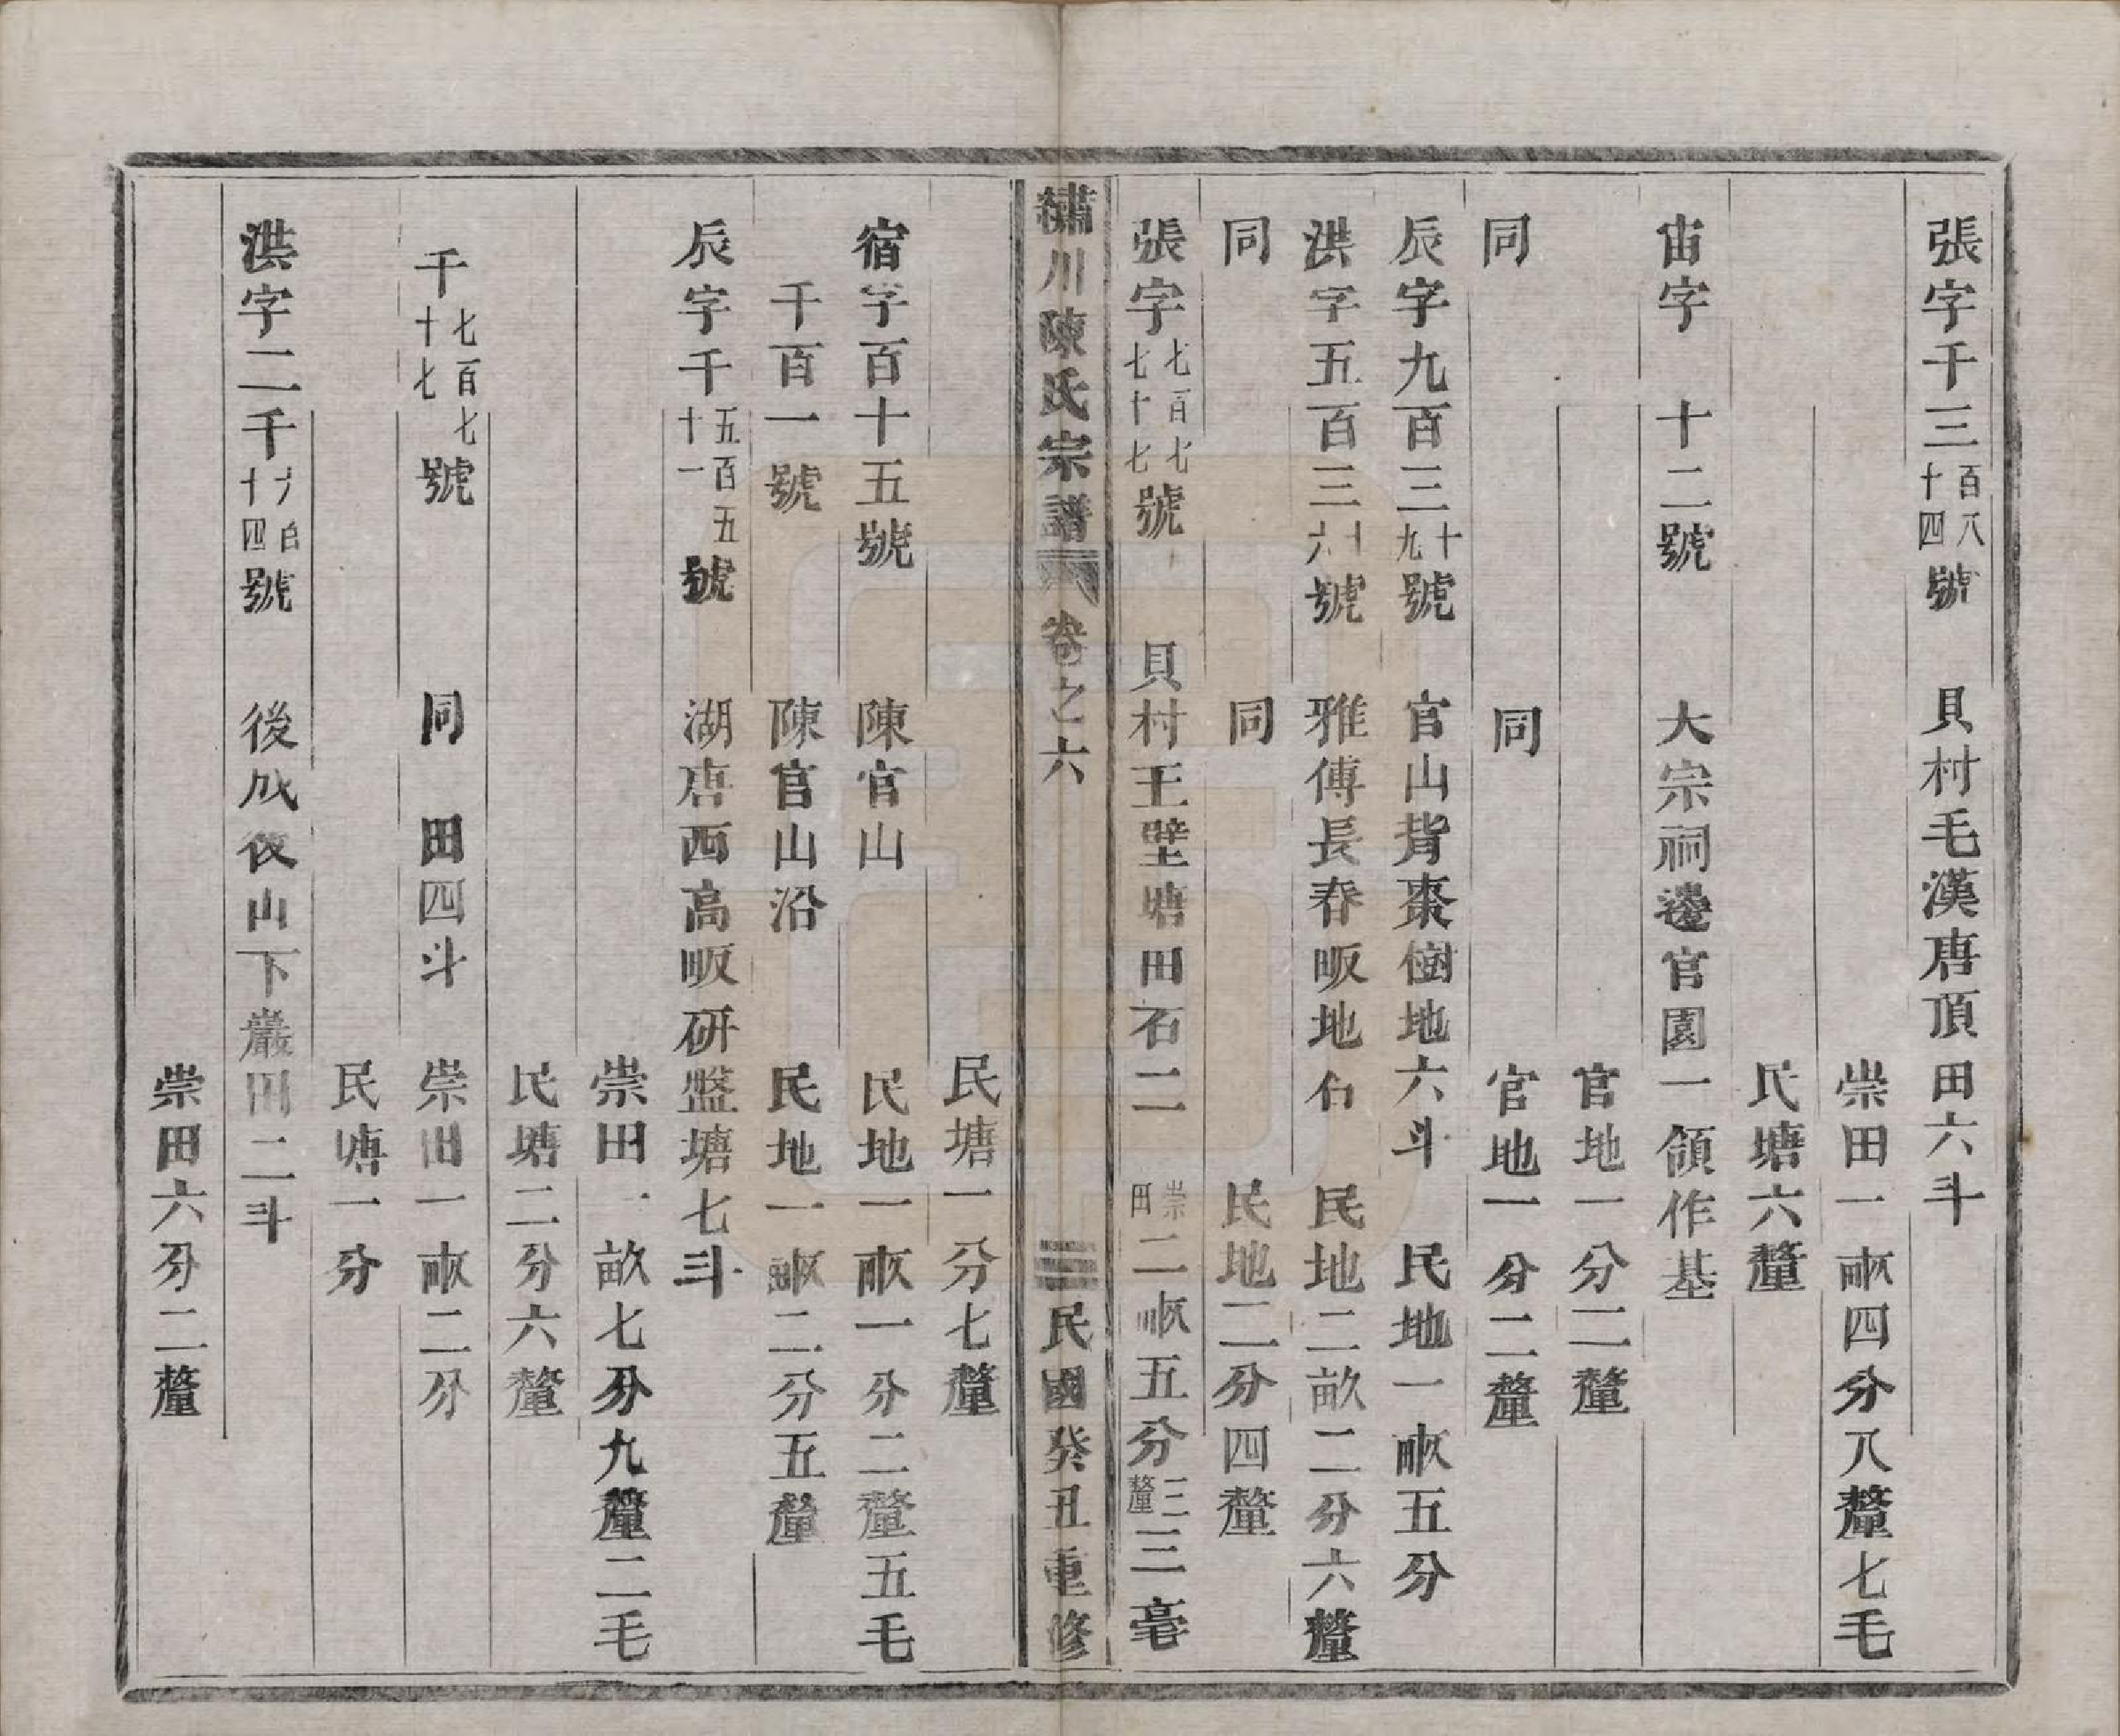 張字千三百八十四號　貝村毛漢唐頂田六斗
崇田一畝四分八釐七毛
民塘六釐
宙字　十二號　大宗祠邊官園一領作基
官地一分二釐
同　同　官地一分二釐
辰字九百三十九號　官山背棗樹地六斗　民地一畝五分
洪字五百三十六號　雅傅長春畈地石　民地二畝二分六釐
同　同　民地二分四釐
張字七百七七十七號　貝村王壁塘田石二　崇田二畝五分三釐三毫
繡川陳氏宗譜　卷之六　三　民國癸丑重修
民塘一分七釐
宿字百十五號　陳官山　民地一畝一分二釐五毛
千百一號　陳官山沿　民地一畝二分五釐
辰字千五百五十一號　湖唐西高畈研盤塘七斗
崇田一畝七分九釐二毛
民塘二分六釐
千七百七十七號　同　田四斗　崇田一畝二分
民塘一分
洪字二千六百十四號　後成後山下巖田二斗
崇田六分二釐